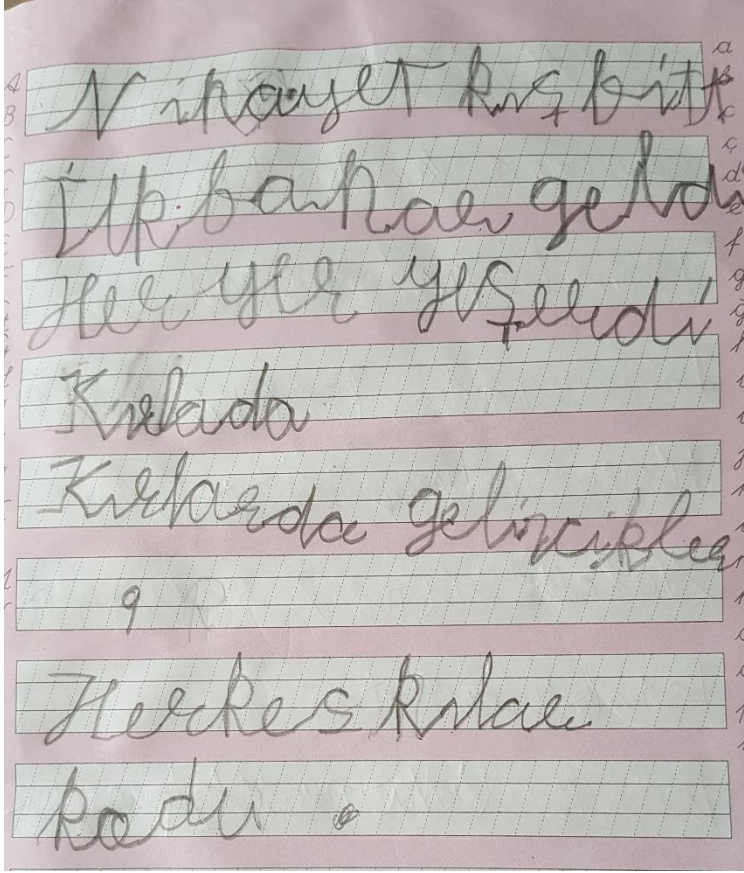 Nihayet kış bitt
İlkbahar geld
Her yer yeşerdi
Kırlada
Kırlarda gelincikler
9
Herkes kırlar
kodu.